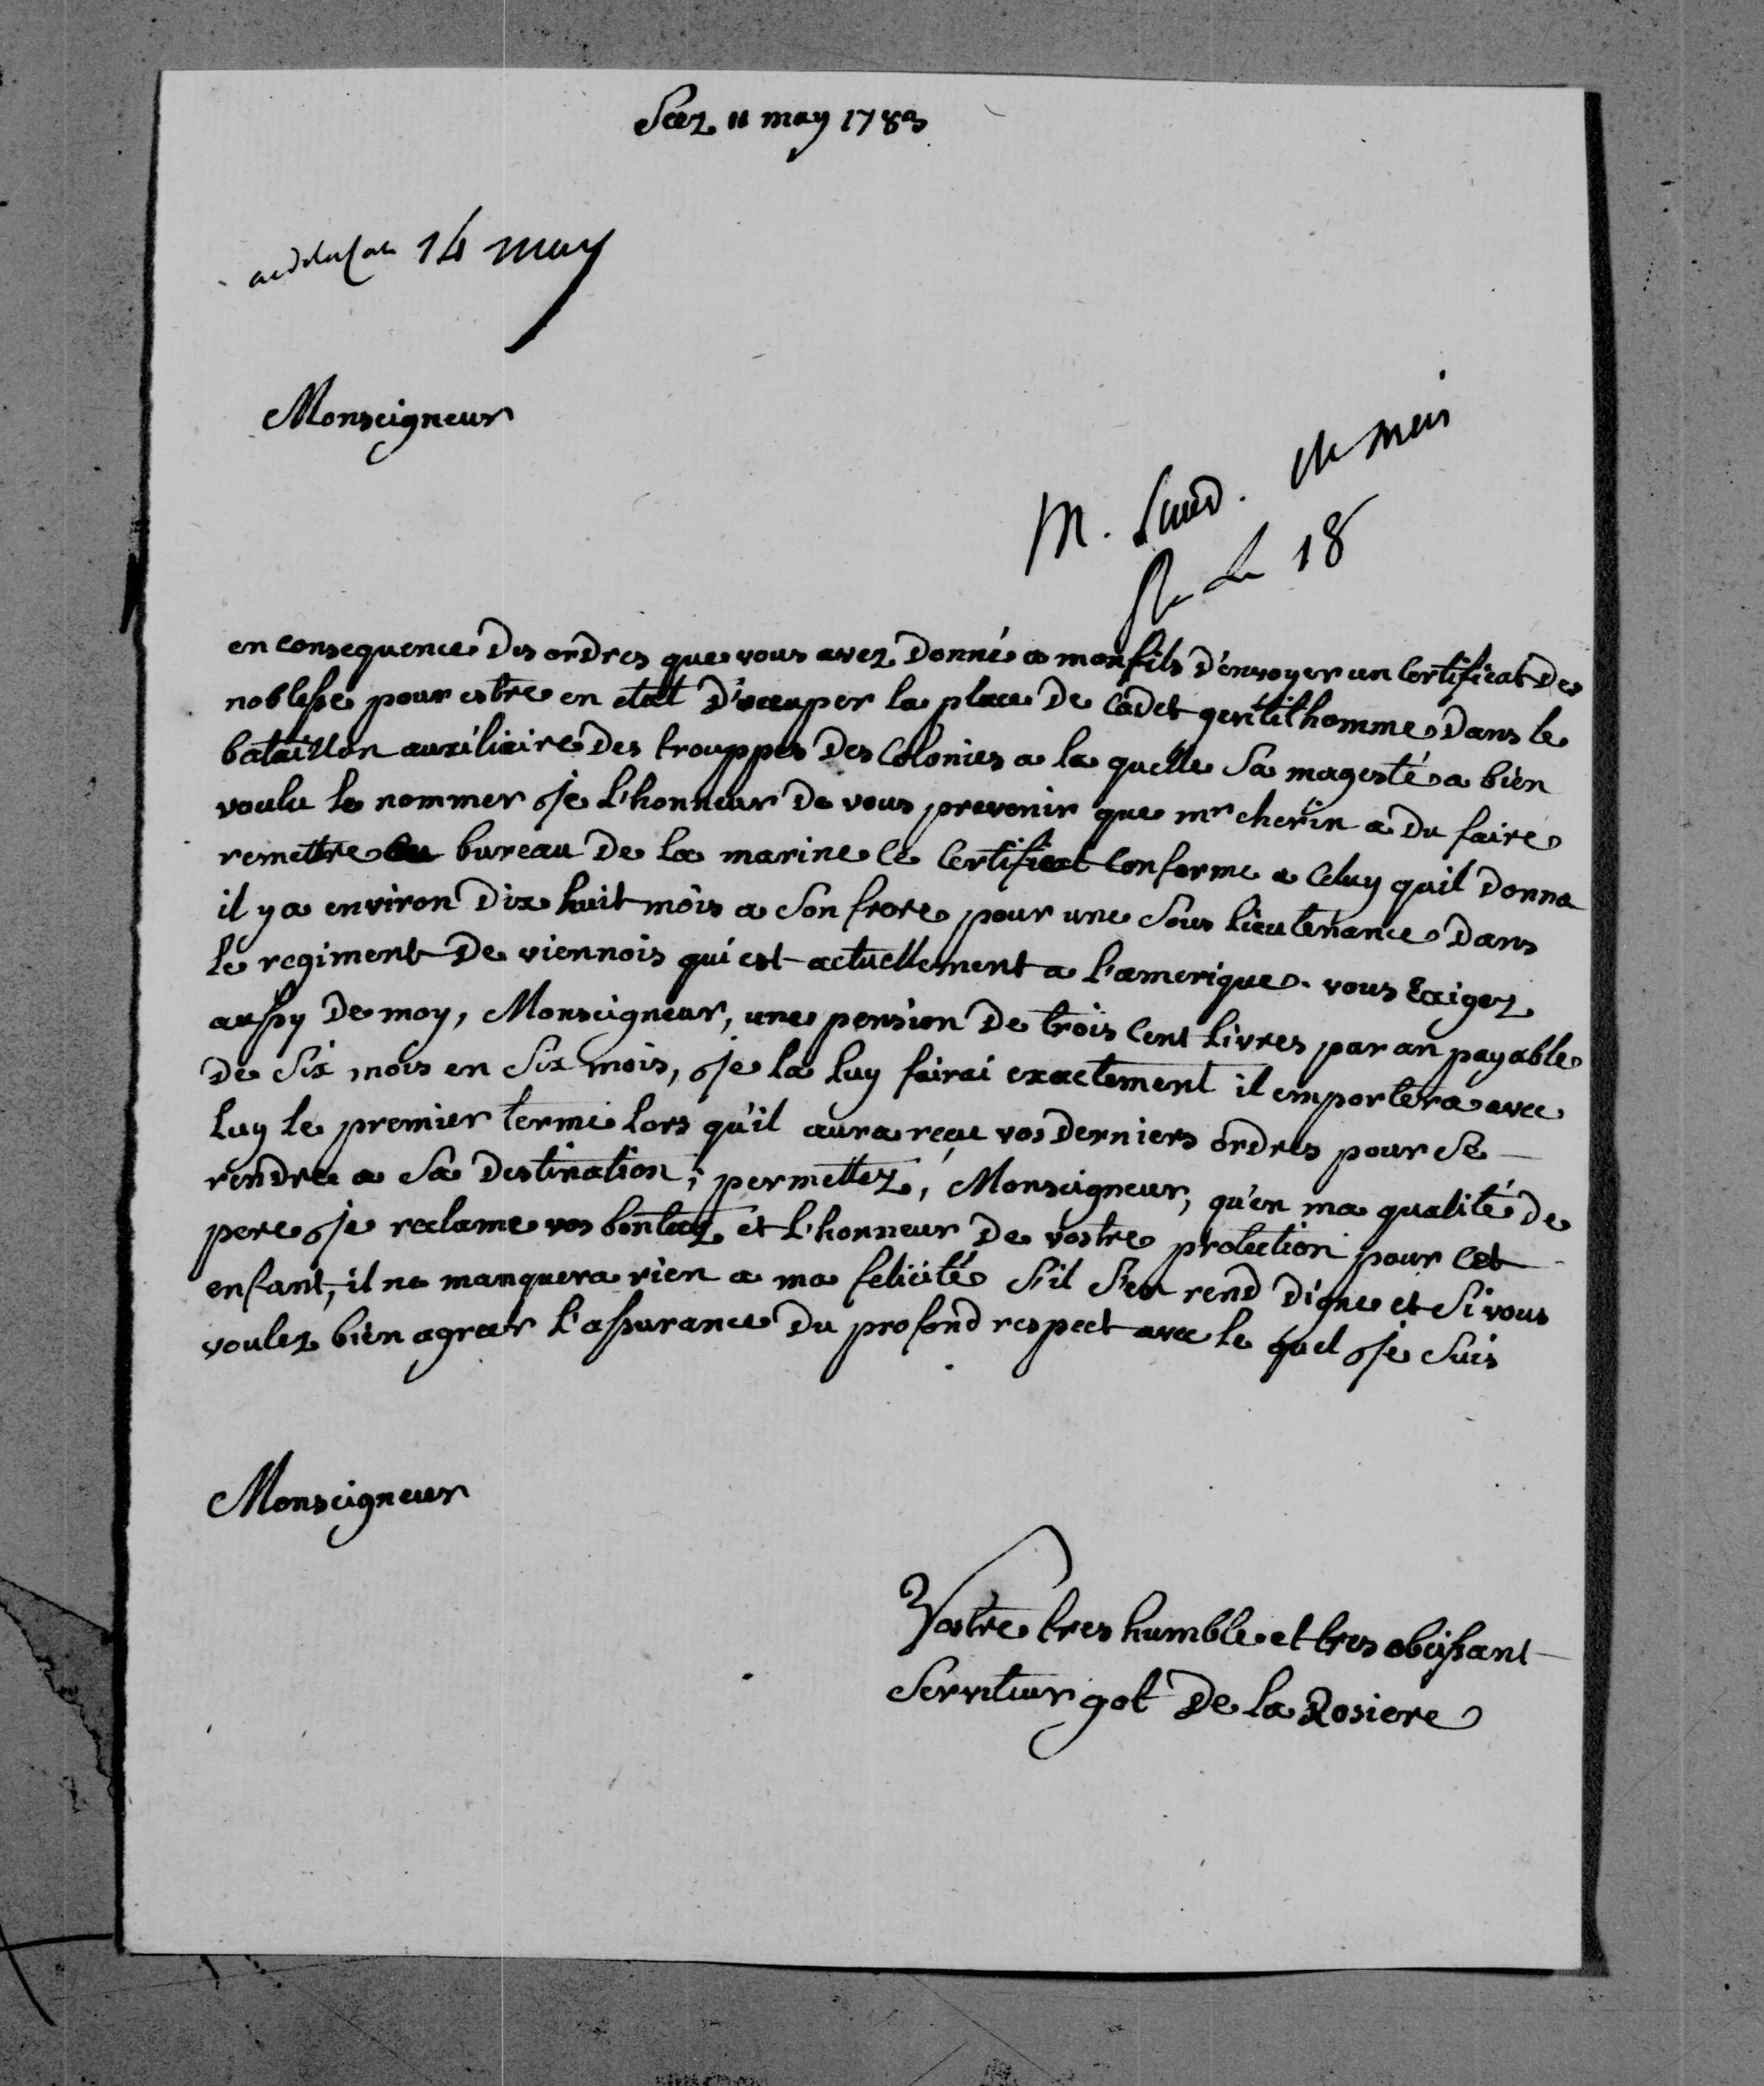 Seez 11 may 1783
14 may
Monseigneur
M.
le 18
en consequence des ordres que vous avez donné a mon fils d'envoyer un certificat de
noblesse pour estre en etat d'occuper la place de cadet gentilhomme dans le
bataillon auxiliaire des trouppes des colonies a la quelle sa magesté a bien
voulu le nommer je l'honneur de vous prevenir que mr cherin a du faire
remettre au bureau de la marine le certificat conforme a celuy quil donna
il y a environ dix huit mois a son frere pour une sous lieutenance dans
le regiment de viennois qui est actuellement a l'amerique. vous exigez
aussy de moy, Monseigneur, une pension de trois cent livres par an payable
de six mois en six mois, je la luy fairai exactement il emportera avec
luy le premier terme lors qu'il aura reçu vos derniers ordres pour se
rendre a sa destination; permettez, Monseigneur, qu'en ma qualité de
pere je reclame vos bontez et l'honneur de vostre protection pour cet
enfant, il ne manquera rien a ma felicité s'il s'en rend digne et si vous
voulez bien agreer l'assurance du profond respect avec le quel je suis
Monseigneur
Vostre tres humble et tres obeissant
serviteur got de la Rosiere